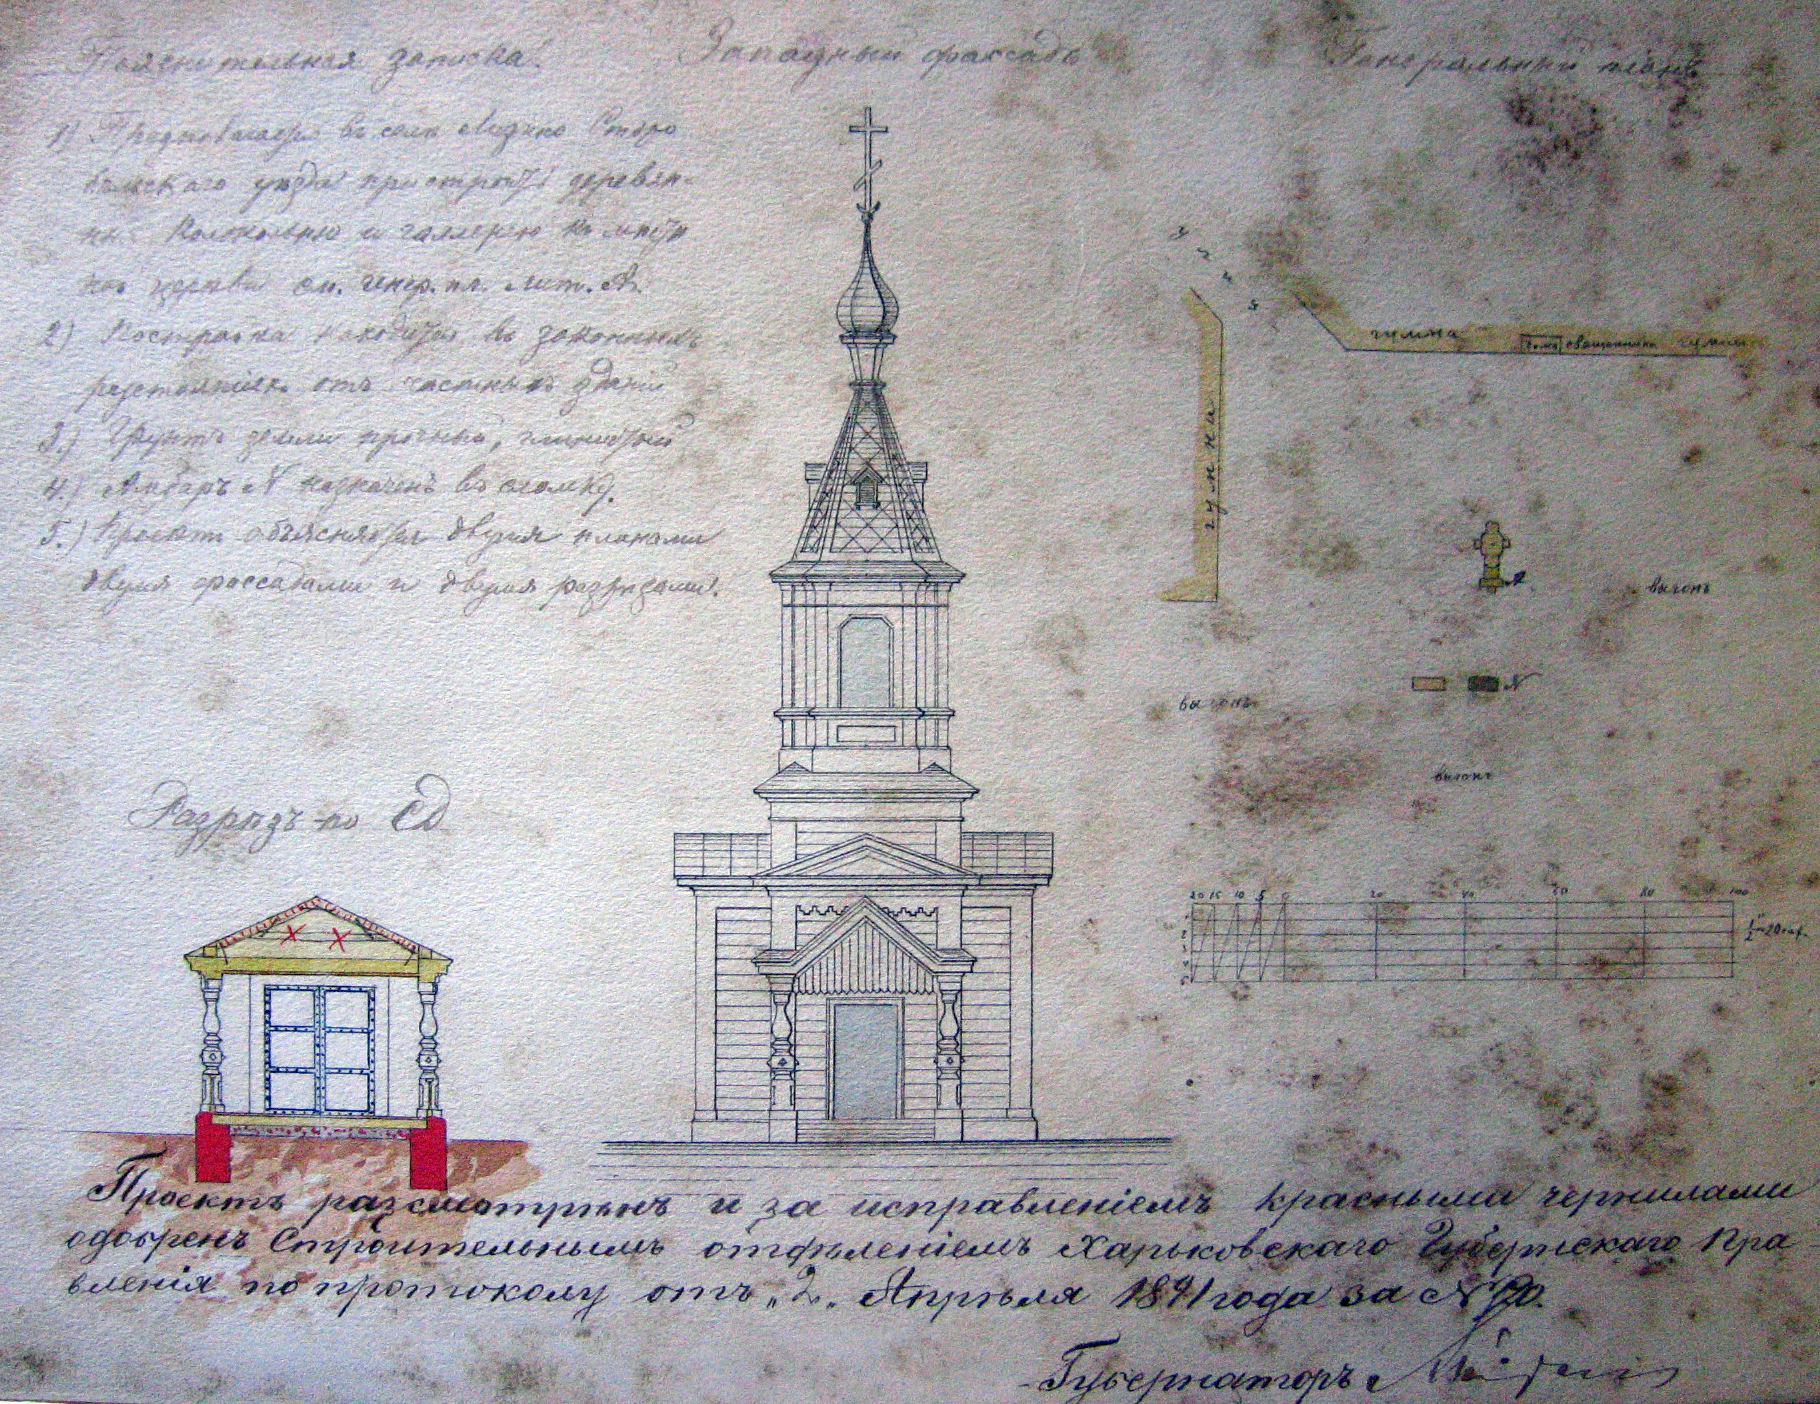 Пояснительная записка.
1) Предполагается въ селѣ Лизино Старо
бѣльскаго уѣзда пристроить деревян-
ную колокольню и галлерею къ мѣст
ной церкви см. генер. пл. лит. А.
2) Постройка находится въ законныхъ
разстояніяхъ отъ частныхъ зданій
3.) Грунтъ земли прочный, глинистый
4.) Амбаръ N назначенъ въ сломку.
5.) Проектъ объясняется двумя планами
двумя фассадами и двумя разрѣзами.
Западный фассадъ
Генеральный планъ
улица
гумна
домъ священника
гумны
гумна
А
выгонъ
N
выгонъ
выгонъ
Разрѣзъ по CD
20 15 10 5 0 20 40 60 80 100
1/2"=20 саж.
Проектъ разсмотрѣнъ и за исправленіемъ красными чернилами
одобренъ Строительнымъ отдѣленіемъ Харьковскаго Губернскаго Пра
вленія по протоколу отъ „2„ Апрѣля 1891 года за N
Губернаторъ